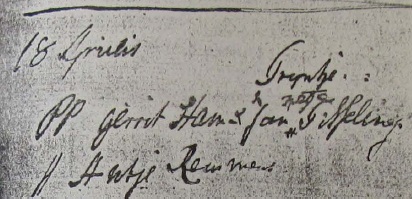 18 Aprilis
Tryntje
PP Gerrit Ham & Jan Tisseling
// Antje Remmers